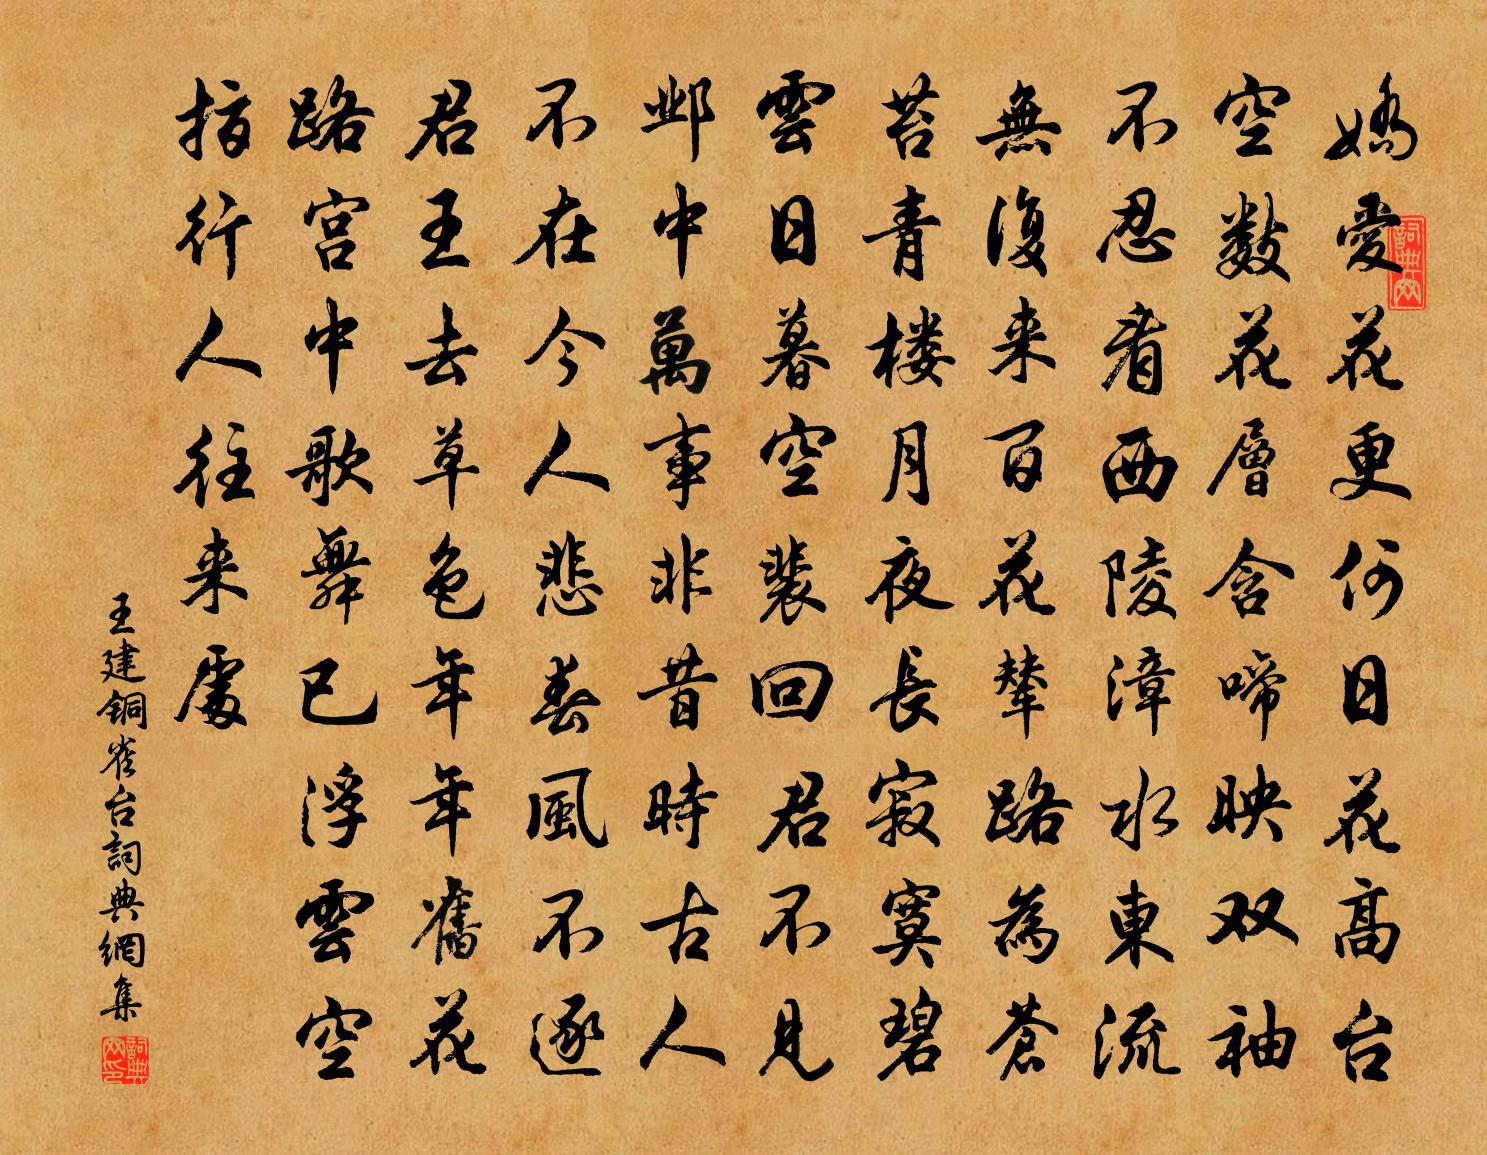 嬌愛花更何日花高台
空數花層含啼映双袖
不忍看西陵漳水東流
無復来百花輦路為蒼
苔青楼月夜長寂寞碧
雲日暮空裴回君不見
邺中萬事非昔時古人
不在今人悲春風不逐
君王去草色年年舊花
路宫中歌舞已浮雲空
指行人往来處
王建铜雀台詞典網集
詞典网
詞典网印